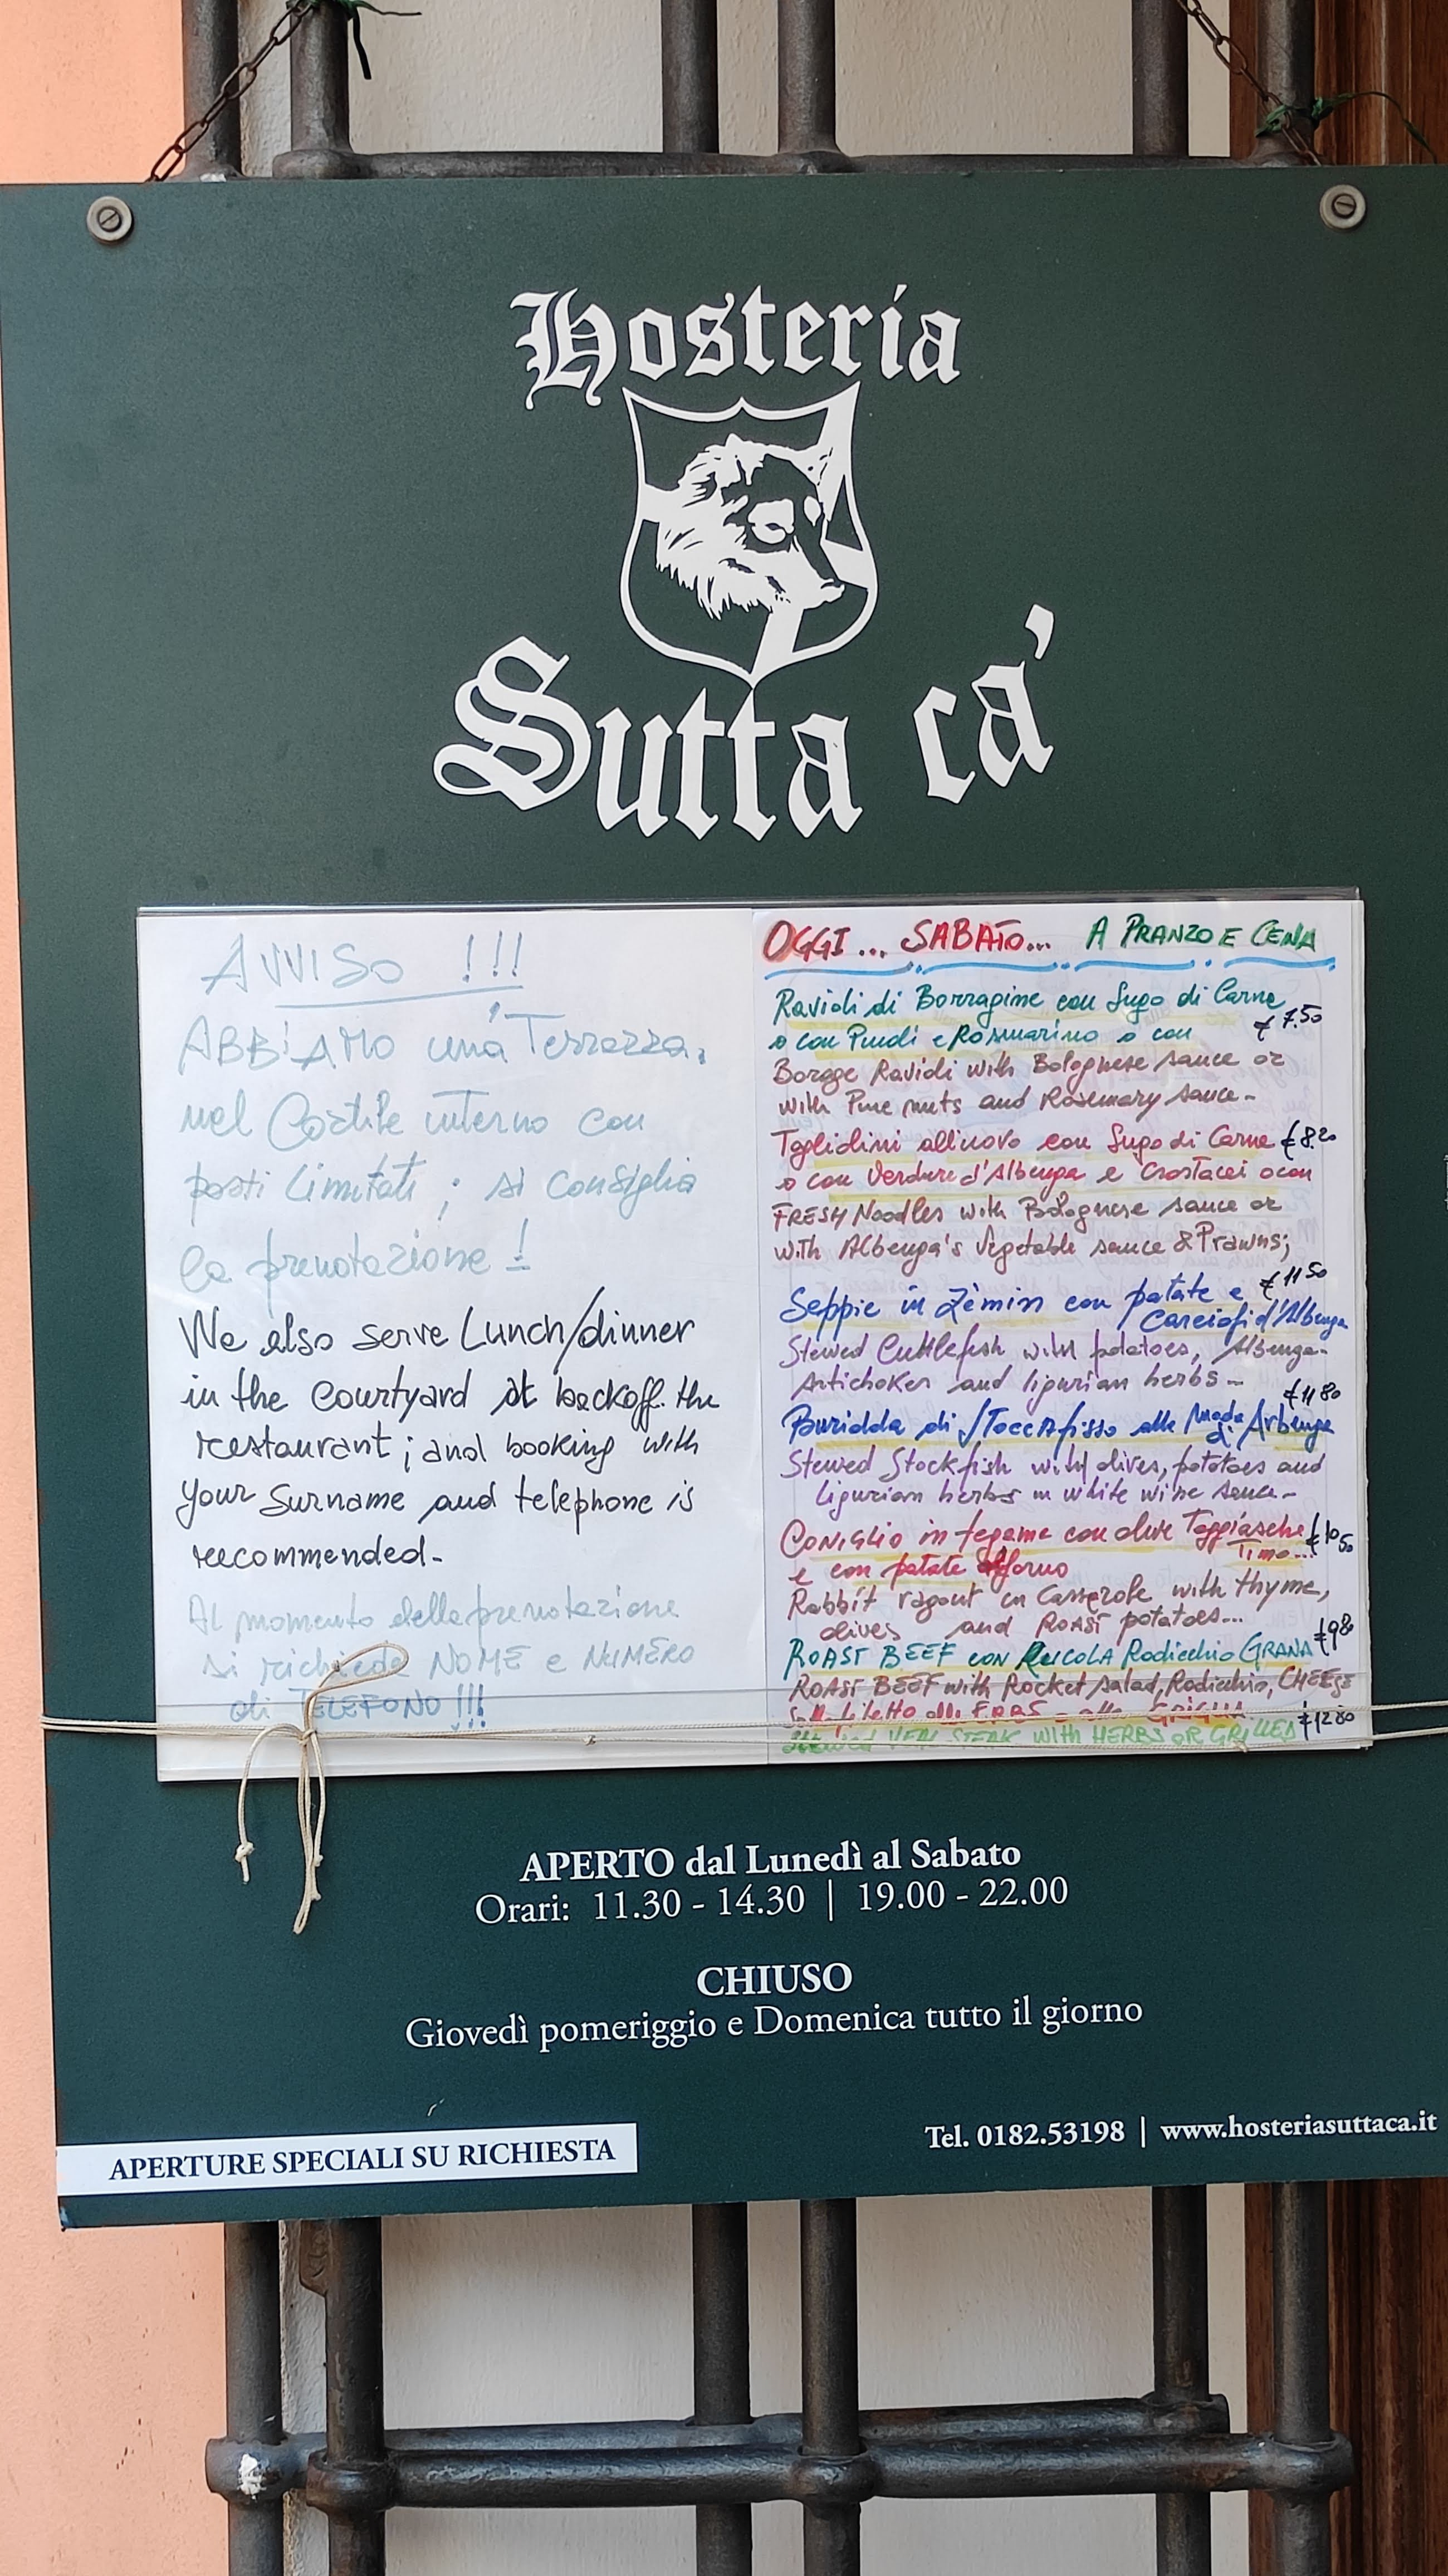 Hosteria
Sutta ca'
AVVISO !!!
ABBiAMO una Terrazza,
nel Cortile interno con
posti Limitati ; si Consiglia
la prenotazione !
We also serve Lunch/dinner
in the Courtyard at backoff the
restaurant ; and booking with
your Surname and telephone is
recommended-
Al momento della prenotazione
si richiede NOME e NUMERO
di TELEFONO !!!
OGGI ... SABATO... A PRANZO E CENA
Ravioli di Borragine con Sugo di Carne
o con Pinoli e Rosmarino o con € 7.50
Borage Ravioli with Bolognese sauce or
with Pine nuts and Rosemary sauce-
Tagliolini all'uovo con Sugo di Carne € 8.20
o con Verdure d'Albenga e Crostacei o con
FRESH Noodles with Bolognese sauce or
with Albenga's Vegetable sauce & Prawns;
Seppie in Zèmin con patate e € 11 50
Carciofi d'Albenga
Stewed Cuttlefish with potatoes, Albenga-
Artichokes and ligurian herbs-
€ 11 80
Buridda di Stoccafisso alla moda di Arbenga
Stewed Stockfish with olives, potatoes and
ligurian herbs in white wine sauce-
CONIGLIO in tegame con olive Taggiasche € 10 50
Timo...
e con patate al forno
Rabbit ragout in Casserole with thyme,
olives and ROAST potatoes...
€ 9 80
ROAST BEEF CON RUCOLA Radicchio GRANA
ROAST BEEF with Rocket salad, Radicchio, CHEESE
alle ERBE o alla GRIGLIA
VEAL STEAK WITH HERBS OR GRILLED
APERTO dal Lunedì al Sabato
Orari: 11.30 - 14.30 | 19.00 - 22.00
CHIUSO
Giovedì pomeriggio e Domenica tutto il giorno
APERTURE SPECIALI SU RICHIESTA
Tel. 0182.53198 | www.hosteriasuttaca.it